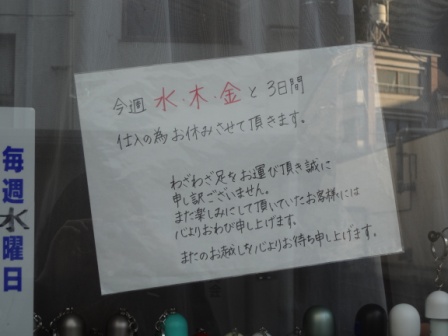 今週 水・木・金と3日間
仕入の為お休みさせて頂きます。
わざわざ足をお運び頂き誠に
申し訳ございません。
また楽しみにして頂いていたお客様には
心よりおわび申し上げます。
またのお越しを心よりお待ち申し上げます。
毎週水曜日